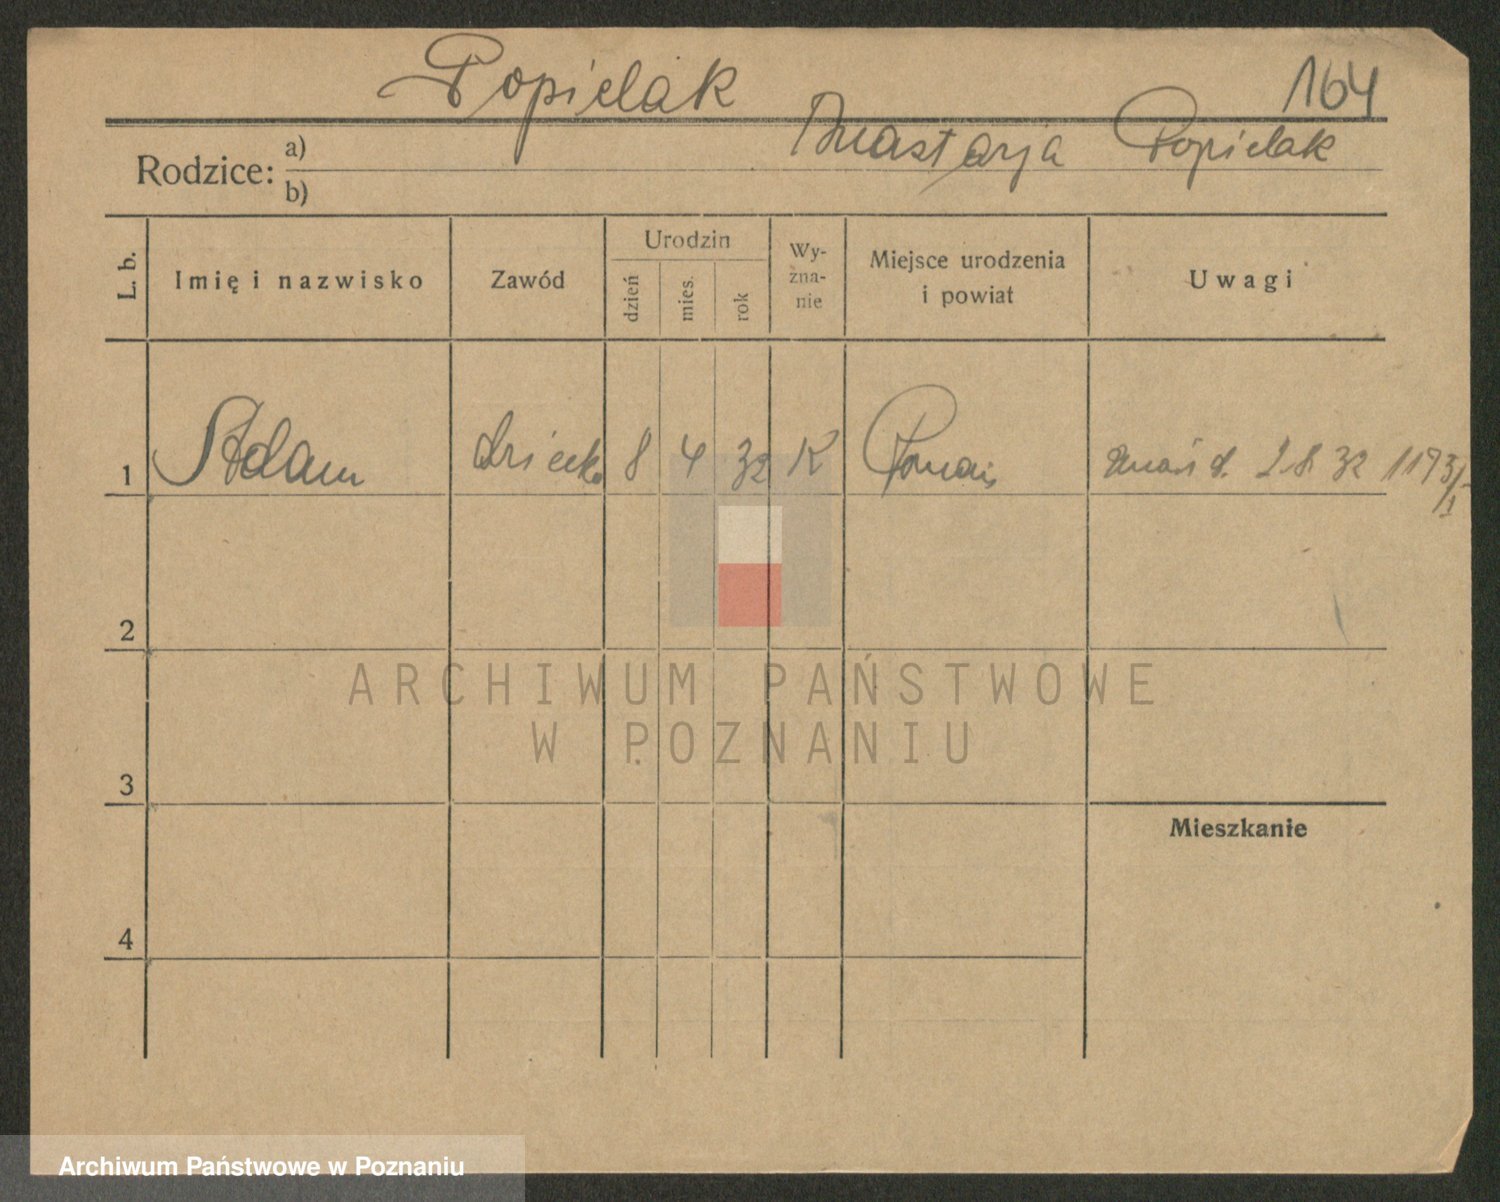 Popielak
164
Rodzice: a) Anastazja Popielak
b)
L. b.
Imię i nazwisko
Zawód
Urodzin
dzień
mies.
rok
Wy-
zna-
nie
Miejsce urodzenia
i powiat
Uwagi
1 Adam dziecko 8 4 32 K Poznań 2 8 32 1173/1
2
3
Mieszkanie
4
ARCHIWUM PAŃSTWOWE
W POZNANIU
Archiwum Państwowe w Poznaniu